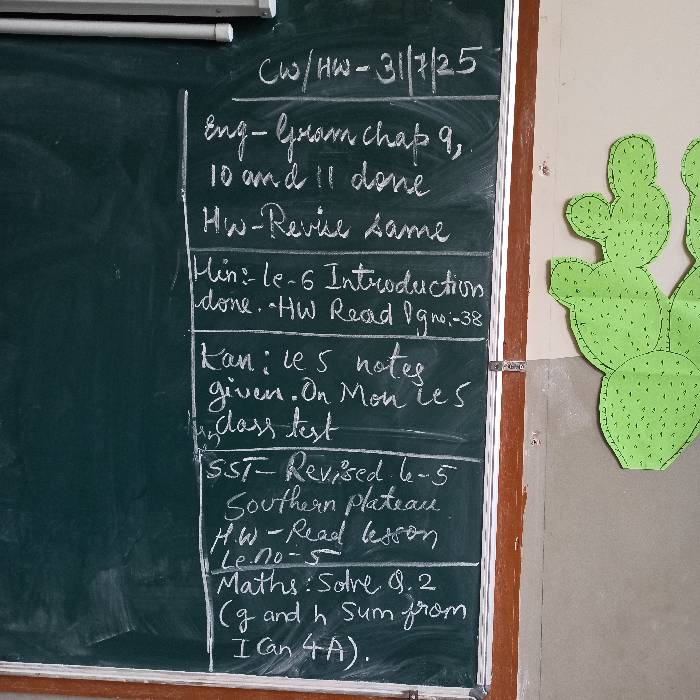 CW/HW - 31/7/25
Eng - Gram chap 9,
10 and 11 done
HW - Revise same
Hin:- le-6 Introduction
done. - HW Read Pg no:-38
Kan : le 5 notes
given. On Mon le 5
class test
SST - Revised le-5
Southern plateau
H.W - Read lesson
Le.no-5
Maths : Solve Q.2
(g and h Sum from
I Can 4A).